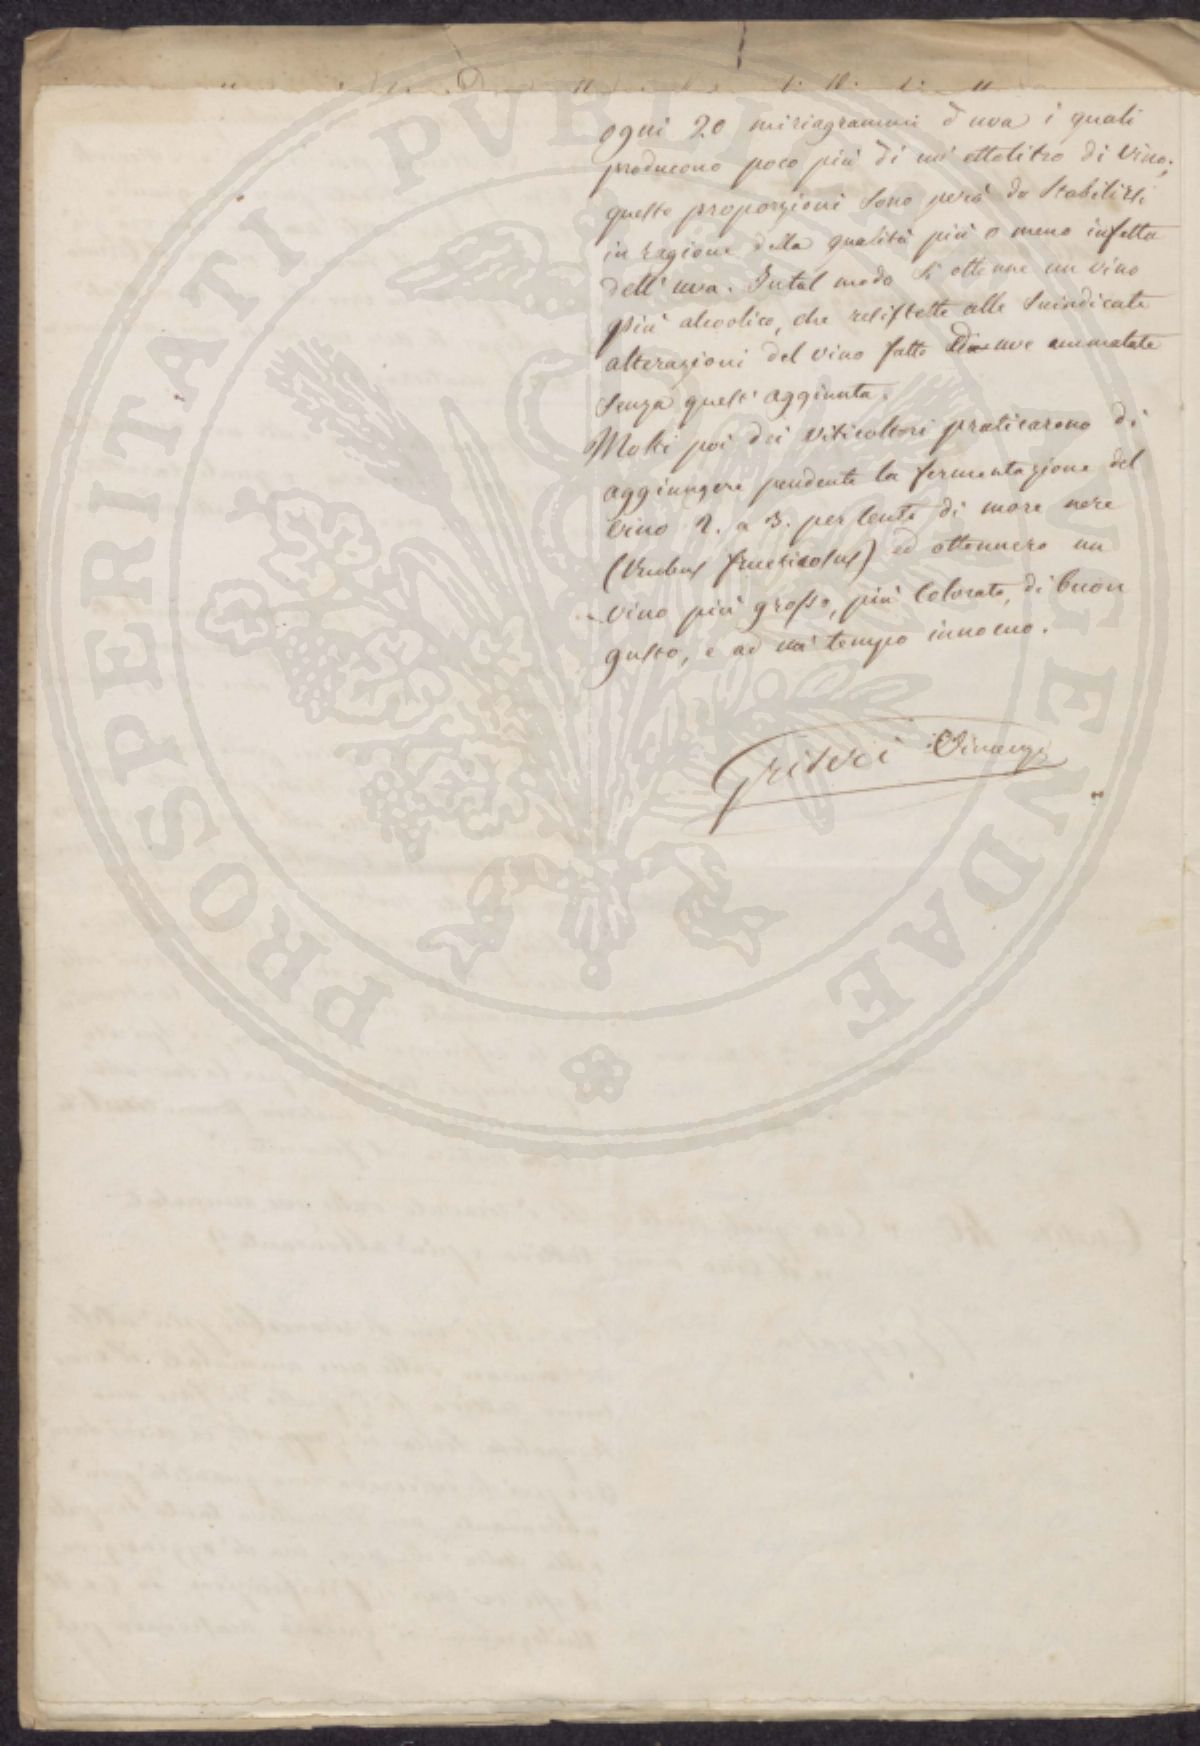 ogni 20 miriagrammi d'uva i quali
producono poco più di un ettolitro di vino,
queste proporzioni sono però da stabilirsi
in ragione della qualità più o meno infetta
dell'uva. In tal modo si ottenne un vino
più alcoolico, che resistette alle suindicate
alterazioni del vino fatto di uve ammalate
senza quest'aggiunta.
Molti poi dei viticoltori praticarono di
aggiungere pendente la fermentazione del
vino 2. a 3. per cento di more nere
(Rubus fruticosus) ed ottennero un
vino più grosso, più colorato, di buon
gusto, e ad un tempo innocuo.
PROSPERITATI PUBLICAE AUGENDAE